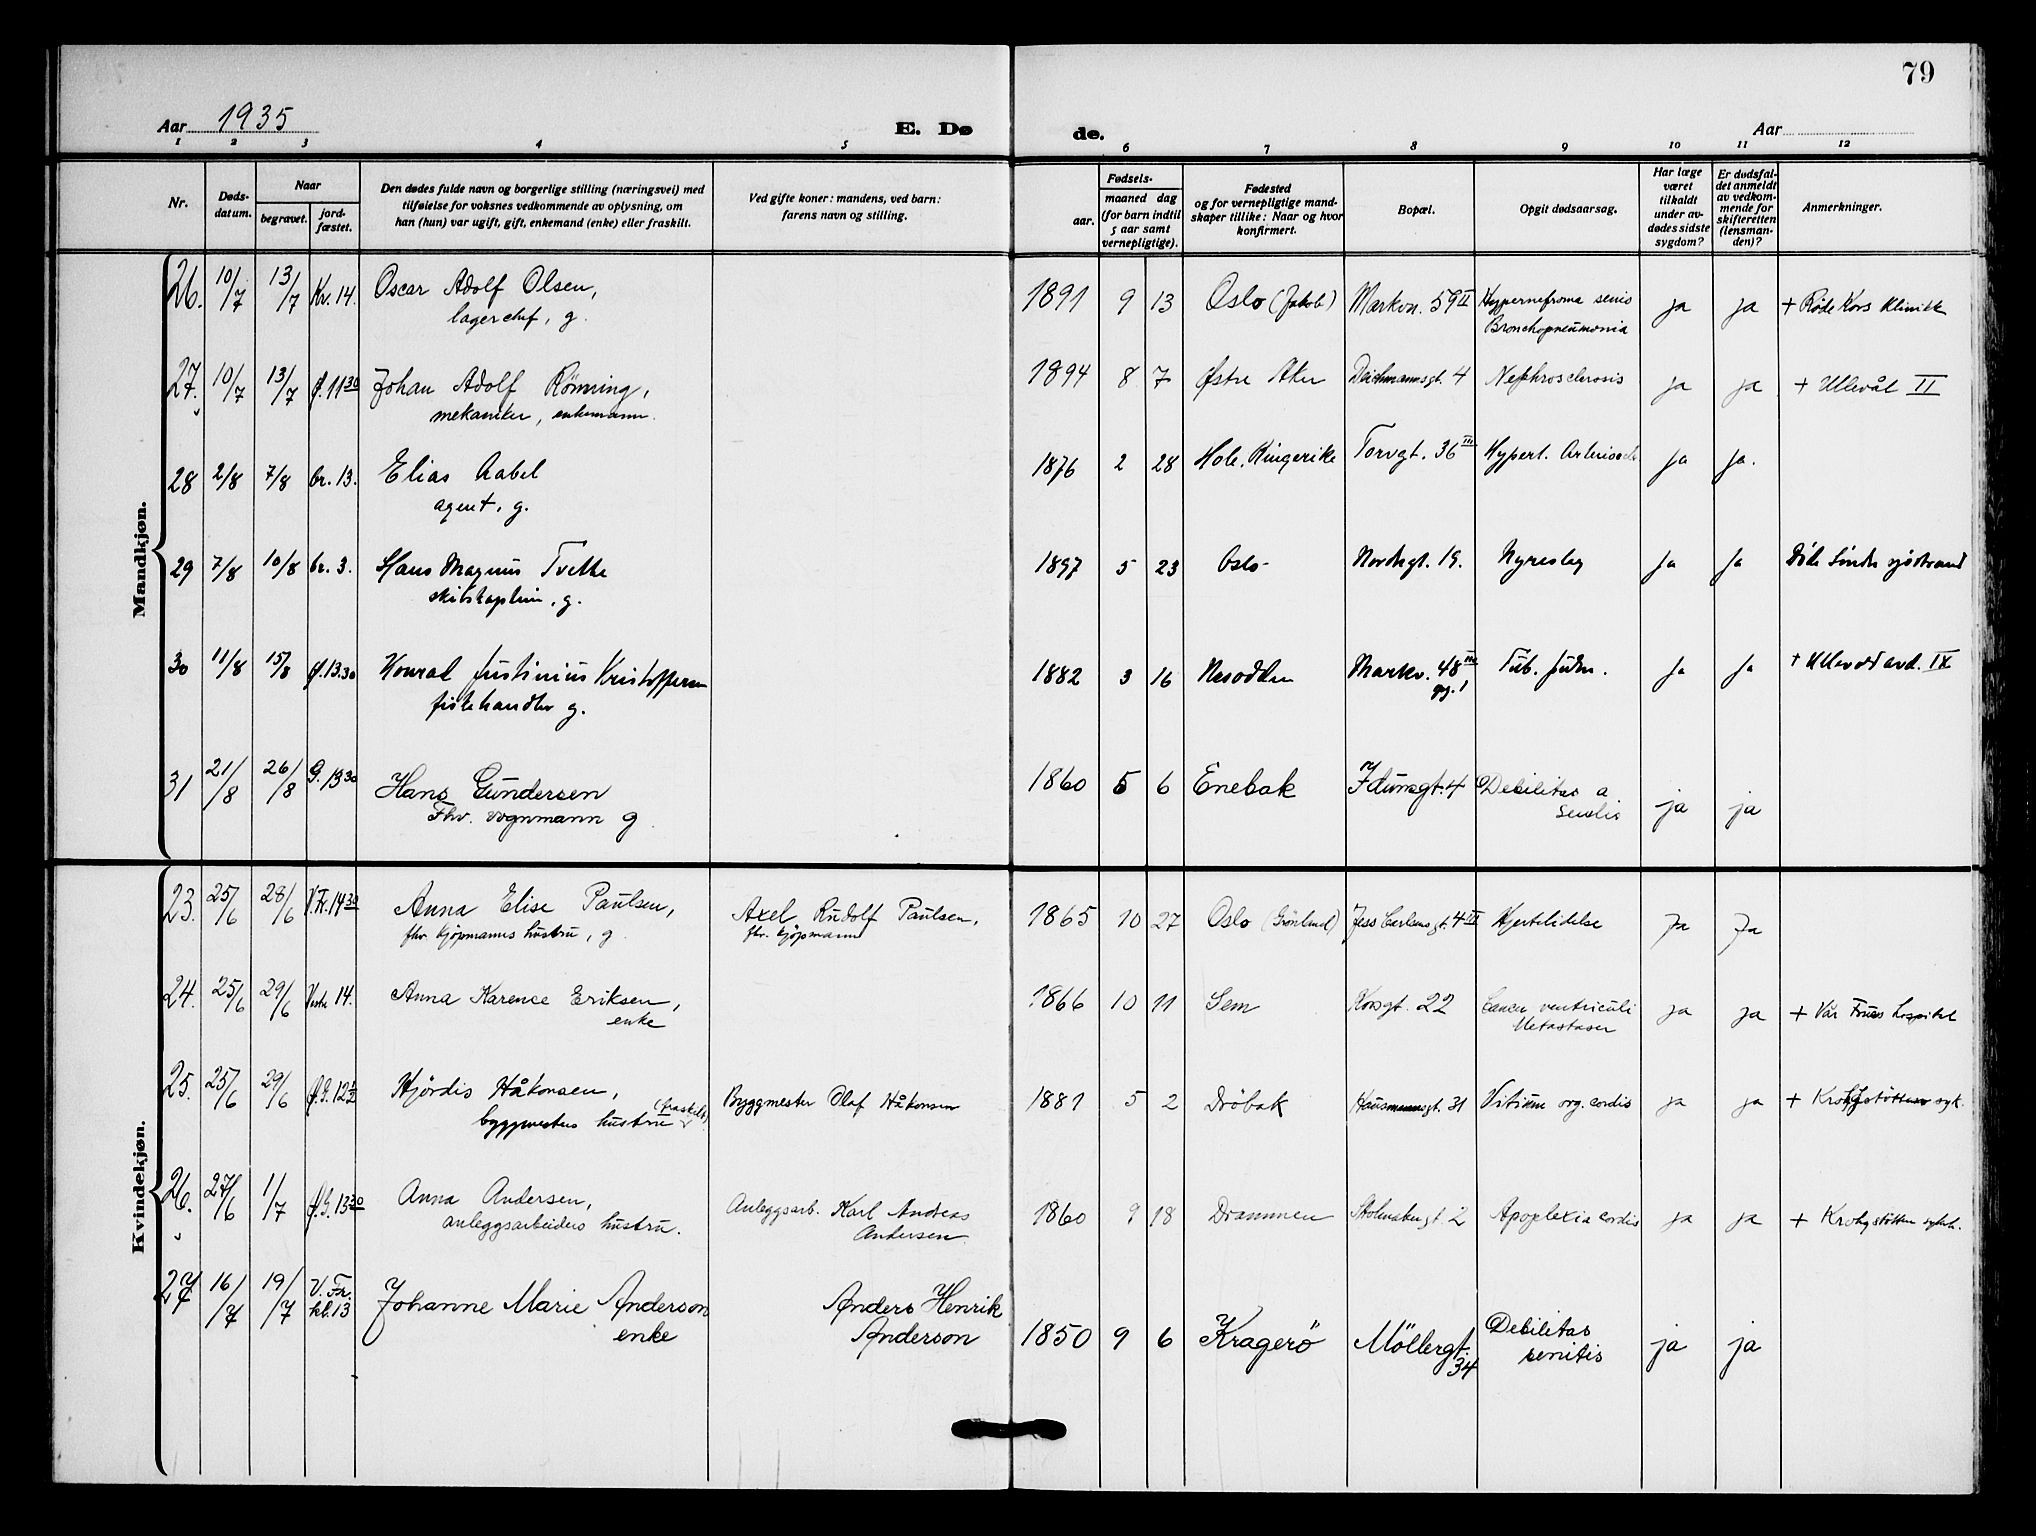 79
Aar 1935
E. Dø
de.
Aar
1 2 3 4 5 6 7 8 9 10 11 12
Nr.
Døds-
datum.
Naar
begravet.
jord-
fæstet.
Den dødes fulde navn og borgerlige stilling (næringsvei) med
tilføielse for voksnes vedkommende av oplysning, om
han (hun) var ugift, gift, enkemand (enke) eller fraskilt.
Ved gifte koner: mandens, ved barn:
farens navn og stilling.
Fødsels-
aar.
maaned dag
(for barn indtil
5 aar samt
vernepligtige).
Fødested
og for vernepligtige mand-
skaper tillike: Naar og hvor
konfirmert.
Bopæl.
Opgit dødsaarsag.
Har læge
været
tilkaldt
under av-
dødes sidste
sygdom?
Er dødsfal-
det anmeldt
av vedkom-
mende for
skifteretten
(lensman-
den)?
Anmerkninger.
Mandkjøn.
26. 10/7 13/7 Kr. 14. Oscar Adolf Olsen, 1891 9 13 Oslo (Jakob) Markvn. 59 II Hypernefroma ja ja + Røde Kors Klinikk
lagerchef, g. Bronchopneumonia
27. 10/7 13/7 11 30 Johan Adolf Rönning, 1894 8 7 Østre Aker Deichmannsgt. 4 Nephrosclerosis ja ja + Ullevål II
mekaniker, enkemann.
28 2/8 7/8 br. 13. Elias Aabel 1876 2 28 Hole, Ringerike Torvgt. 36 III Hypert. ja ja.
agent, g.
29 7/8 10/8 br. 3. Hans Magnus Tvette 1897 5 23 Oslo Nordregt. 19. ja ja Død
g.
30 11/8 15/8 13.30 Konrad Justinius Kristoffersen 1882 3 16 Nesodden Markv. 48 III Tub. pulm. ja ja + Ullevål avd. IX
fiskehandler g.
31 21/8 26/8 G. 13 30 Hans Gundersen 1860 5 6 Enebak Idunsgt. 4 Debilitas a ja ja
Fhv. vognmann g senilis
Kvindekjøn.
23. 25/6 28/6 V. Fr. 14 30 Anna Elise Paulsen, Axel Rudolf Paulsen, 1865 10 27 Oslo (Grønland) Jess Carlsensgt. 4 III Hjertelidelse Ja Ja
fhv. kjøpmanns hustru, g. fhv. kjøpmann
24. 25/6 29/6 Vestre 14. Anna Karence Eriksen, 1866 10 11 Sem Korsgt. 22 Cancer ventriculi ja ja + Vår Frues hospital
enke Metastaser
25. 25/6 29/6 Ø.G. 12 1/2 Hjördis Håkonsen, Byggmester Olaf Håkonsen 1881 5 2 Dröbak Hausmannsgt. 31 Vitium org. cordis ja ja + Krohgstøtten syk.
byggmesters hustru (fraskilt)
26. 27/6 1/7 Ø.G. 13 30 Anna Andersen, Anleggsarb. Karl Andreas 1860 9 18 Drammen 2 Apoplexia cordis ja ja + Krohgstøtten sykh.
anleggsarbeiders hustru. Andersen
27 16/7 19/7 V. Fr. Johanne Marie Anderson Anders Henrik 1850 9 6 Kragerö Möllergt. Debilitas ja ja
kl. 13 enke Anderson 34 senitis